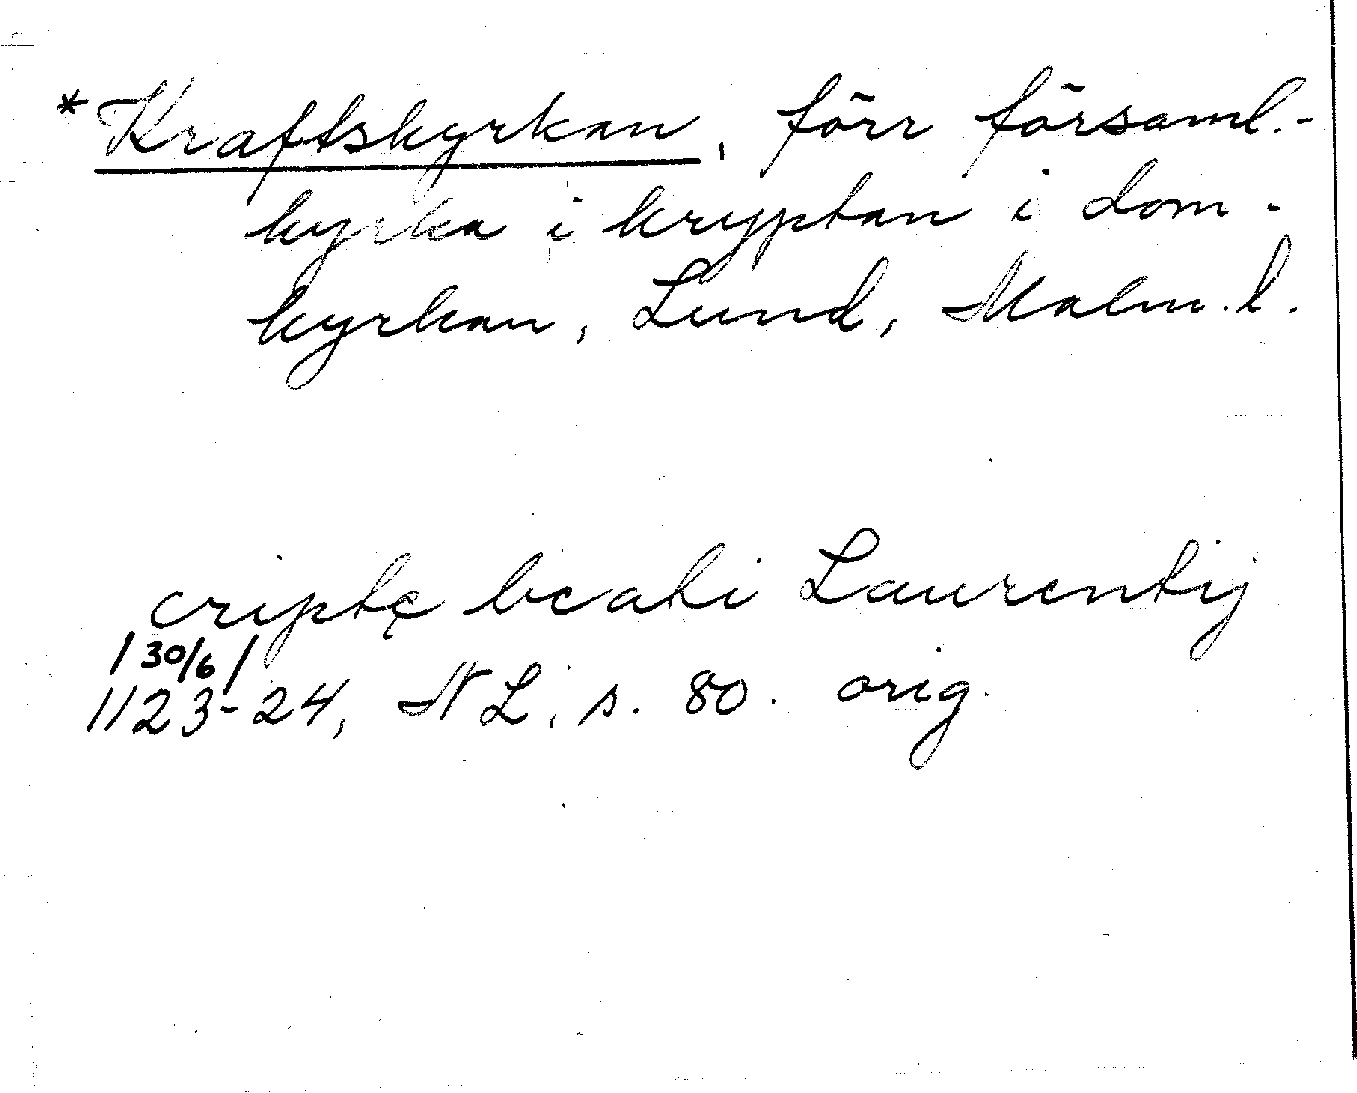 *Kraftskyrkan, förr församl.-
kyrka i kryptan i dom-
kyrkan, Lund, Malm. l.
criptę beati Laurentij
/30/6/
1123-24, N L, s. 80. orig.